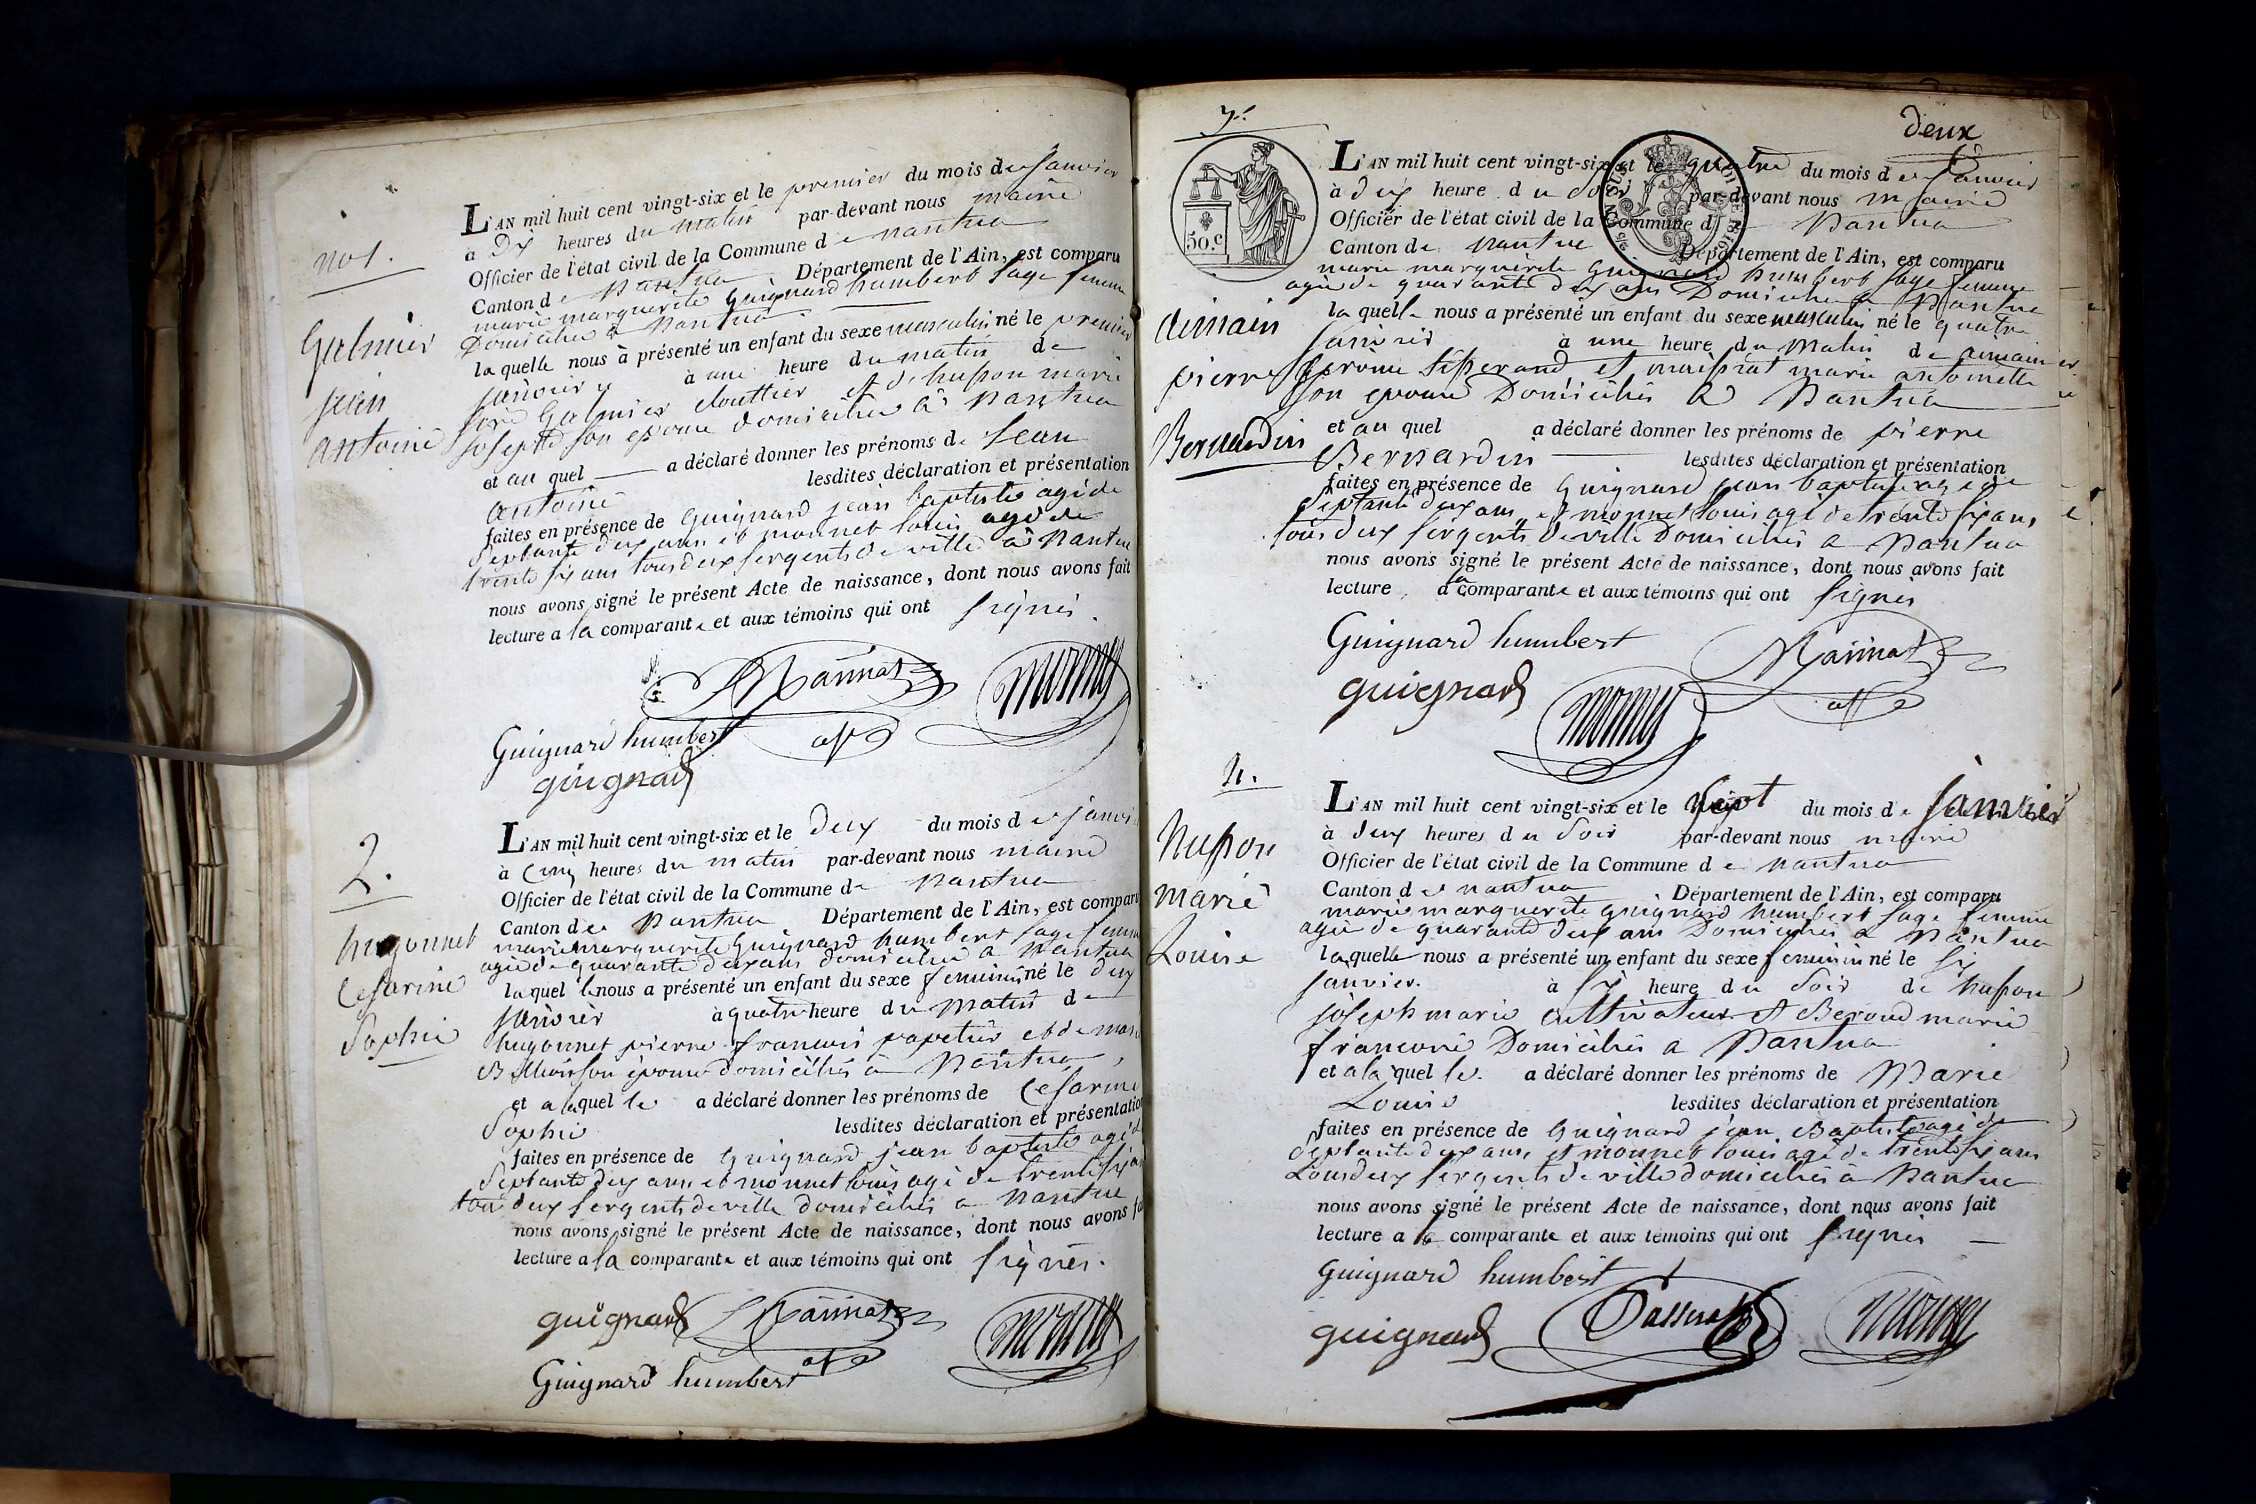 no 1.
Galmier
jean
antoine
L'AN mil huit cent vingt-six et le premier du mois de janvier
à Dix heures du matin par-devant nous maire
Officier de l'état civil de la Commune de nantua
Canton de Nantua Département de l'Ain, est comparu
marie marguerite Guignard humbert sage femme
Domiciliée à Nantua
laquelle nous à présenté un enfant du sexe masculin né le premier
janvier à une heure du matin de
Galmier clouttier et de husson marie
josephte son epouse domiciliés à Nantua
et au quel a déclaré donner les prénoms de jean
antoine lesdites déclaration et présentation
faites en présence de Guignard jean baptiste agé de
septante deux ans et monnet louis agé de
trente six ans tous deux sergents de ville à Nantua
nous avons signé le présent Acte de naissance, dont nous avons fait
lecture a la comparante et aux témoins qui ont signés.
Guignard humbert
guignard
2.
hugonnet
Cesarine
Sophie
L'AN mil huit cent vingt-six et le deux du mois de janvier
à Cinq heures du matin par-devant nous maire
Officier de l'état civil de la Commune de Nantua
Canton de Nantua Département de l'Ain, est comparu
marie marguerite Guignard humbert sage femme
agée de quarante deux ans domiciliée a Nantua
laquelle nous a présenté un enfant du sexe feminin né le deux
janvier à quatre heure du matin de
hugonnet pierre francois papetier et de
son épouse domiciliés à Nantua,
et a laquelle a déclaré donner les prénoms de Cesarine
Sophie lesdites déclaration et présentation
faites en présence de Guignard jean baptiste agé de
septante deux ans et monnet louis agé de trente six ans
tous deux sergents de ville domiciliés a Nantua
nous avons signé le présent Acte de naissance, dont nous avons fait
lecture a la comparante et aux témoins qui ont signés.
guignard
Guignard humbert
deux
50.c
3.
aimain
pierre
Bernardin
L'AN mil huit cent vingt-six et le quatre du mois de janvier
à deux heure du soir par-devant nous maire
Officier de l'état civil de la Commune de Nantua
Canton de Nantua Département de l'Ain, est comparu
marie marguerite Guignard humbert sage femme
agée de quarante deux ans Domiciliée a Nantua
laquelle nous a présenté un enfant du sexe masculin né le quatre
janvier à une heure du matin de aimain
jerome tisserand et maissiat marie antoinette
son epouse Domiciliés a Nantua
et au quel a déclaré donner les prénoms de pierre
Bernardin lesdites déclaration et présentation
faites en présence de Guignard jean baptiste agé de
septante deux ans et monnet louis agé de trente six ans,
tous deux sergents de ville Domiciliés a Nantua
nous avons signé le présent Acte de naissance, dont nous avons fait
lecture a la comparante et aux témoins qui ont signés
Guignard humbert
guignard
4.
husson
marie
Louise
L'AN mil huit cent vingt-six et le sept du mois de janvier
à deux heures du soir par-devant nous maire
Officier de l'état civil de la Commune de nantua
Canton de nantua Département de l'Ain, est comparu
marie marguerite guignard humbert sage femme
agée de quarante deux ans Domiciliée a Nantua
laquelle nous a présenté un enfant du sexe feminin né le six
janvier. à six heure du soir de husson
joseph marie cultivateur et Beroud marie
francoise Domiciliés a Nantua
et a la quelle a déclaré donner les prénoms de Marie
Louise lesdites déclaration et présentation
faites en présence de Guignard jean Baptiste agé de
septante deux ans, et monnet louis agé de trente six ans
tous deux sergents de ville domiciliés à Nantua
nous avons signé le présent Acte de naissance, dont nous avons fait
lecture a la comparante et aux témoins qui ont signés
Guignard humbert
guignard